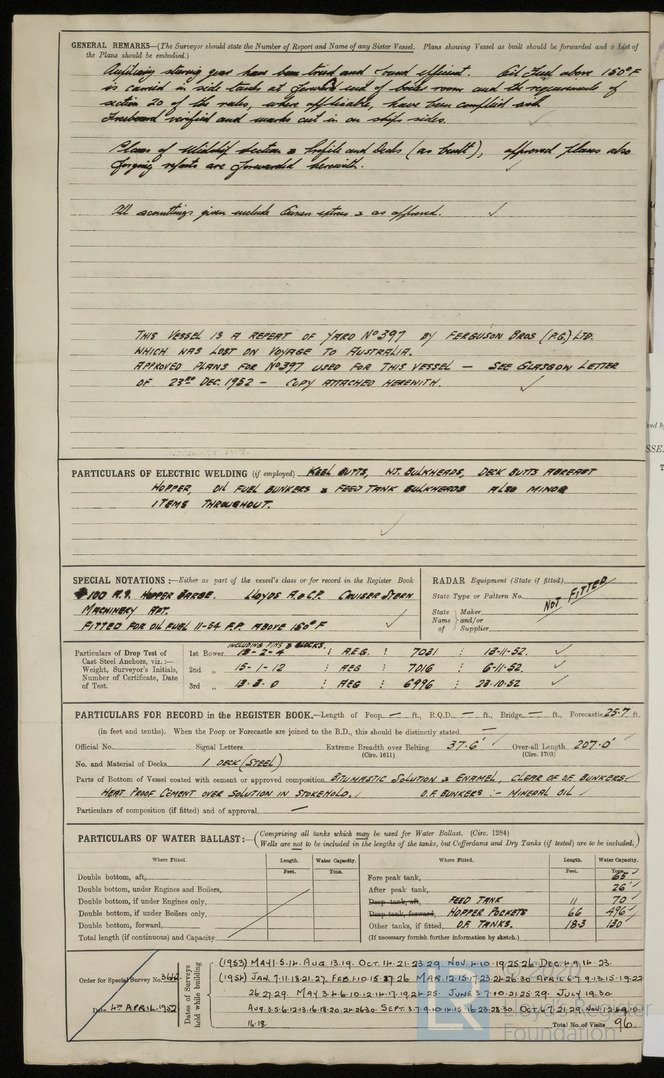 GENERAL REMARKS—(The Surveyor should state the Number of Report and Name of any Sister Vessel. Plans showing Vessel as built should be forwarded and a list of
the Plans should be embodied.)
Auxiliary steering gear have been tried and found efficient. Oil Fuel above 150°F
is carried in side tanks at forward end of boiler room and the requirements of
section 20 of the rules, where applicable, have been complied with
Freeboard verified and marks cut in on ships sides.
Plans of Midship section & Profile and Decks (as built), approved plans also
forging reports are forwarded herewith.
All scantlings given include Owners extras & as approved.
THIS VESSEL IS A REPEAT OF YARD No 397 BY FERGUSON BROS (P.G.) LTD.
WHICH WAS LOST ON VOYAGE TO AUSTRALIA.
APPROVED PLANS FOR No 397 USED FOR THIS VESSEL — SEE GLASGOW LETTER
OF 23RD DEC. 1952 — COPY ATTACHED HEREWITH.
PARTICULARS OF ELECTRIC WELDING (if employed) KEEL BUTTS, W.T. BULKHEADS, DECK BUTTS ABREAST
HOPPER, OIL FUEL BUNKERS & FEED TANK BULKHEADS ALSO MINOR
ITEMS THROUGHOUT.
SPECIAL NOTATIONS :—Either as part of the vessel's class or for record in the Register Book
100 A.1. HOPPER BARGE. LLOYDS A & C.P. CRUISER STERN
MACHINERY AFT.
FITTED FOR OIL FUEL 11-54 F.P. ABOVE 150°F
RADAR Equipment (State if fitted)
State Type or Pattern No.
NOT FITTED
State Name of Maker and/or Supplier
Particulars of Drop Test of Cast Steel Anchors, viz. :— Weight, Surveyor's Initials, Number of Certificate, Date of Test.
INCLUDING PINS & BLOCKS.
1st Bower 13-2-4 : A.E.G. : 7031 : 13-11-52.
2nd „ 15-1-12 : AEG : 7016 : 6-11-52.
3rd „ 13-3-0 : AEG : 6996 : 23-10-52
PARTICULARS FOR RECORD in the REGISTER BOOK.—Length of Poop — ft., R.Q.D. — ft., Bridge — ft., Forecastle 25·7 ft.
(in feet and tenths). When the Poop or Forecastle are joined to the B.D., this should be distinctly stated —
Official No. Signal Letters Extreme Breadth over Belting 37·6' Over-all Length 207·0'
(Circ. 1611) (Circ. 1703)
No. and Material of Decks 1 DECK (STEEL)
Parts of Bottom of Vessel coated with cement or approved composition BITUMASTIC SOLUTION & ENAMEL, CLEAR OF O.F. BUNKERS
HEAT PROOF CEMENT OVER SOLUTION IN STOKEHOLD. O.F. BUNKERS :- MINERAL OIL
Particulars of composition (if fitted) and of approval —
PARTICULARS OF WATER BALLAST:— (Comprising all tanks which may be used for Water Ballast. (Circ. 1284)
Wells are not to be included in the lengths of the tanks, but Cofferdams and Dry Tanks (if tested) are to be included.)
Where Fitted. Length. Water Capacity. Where Fitted. Length. Water Capacity.
Feet. Tons. Feet. Tons.
Double bottom, aft, Fore peak tank, 65
Double bottom, under Engines and Boilers, After peak tank, 26
Double bottom, if under Engines only, Deep tank, aft, FEED TANK 11 70
Double bottom, if under Boilers only, Deep tank, forward, HOPPER POCKETS 66 496
Double bottom, forward, Other tanks, if fitted, O.F. TANKS. 18·3 130
Total length (if continuous) and Capacity (If necessary furnish further information by sketch.)
Order for Special Survey No. 3442
Date 4TH APRIL 1952
Dates of Surveys held while building
(1953) MAY 1·5·14· AUG. 13·19· OCT. 14·21·23·29· NOV. 4·10·19·25·26· DEC. 4·9·14·23.
(1954) JAN. 7·11·18·21·27. FEB. 1·10·15· 26 MAR. 12·15·17·23·24·26·30 APRIL 6·7·9·13·15·19·22
26·27·29· MAY 3·4·6·10·12·14·17·19·24·25· JUNE 3·7·10·21·25·29· JULY 19·30·
AUG. 3·5·6·12·13·16·18·20·24·26·30· SEPT. 3·7·9·10·14·15·16·23·28·30· OCT. 6·7·21·29· NOV.
16·18.
Total No. of Visits 96.
© 2020
Lloyd's Register
Foundation